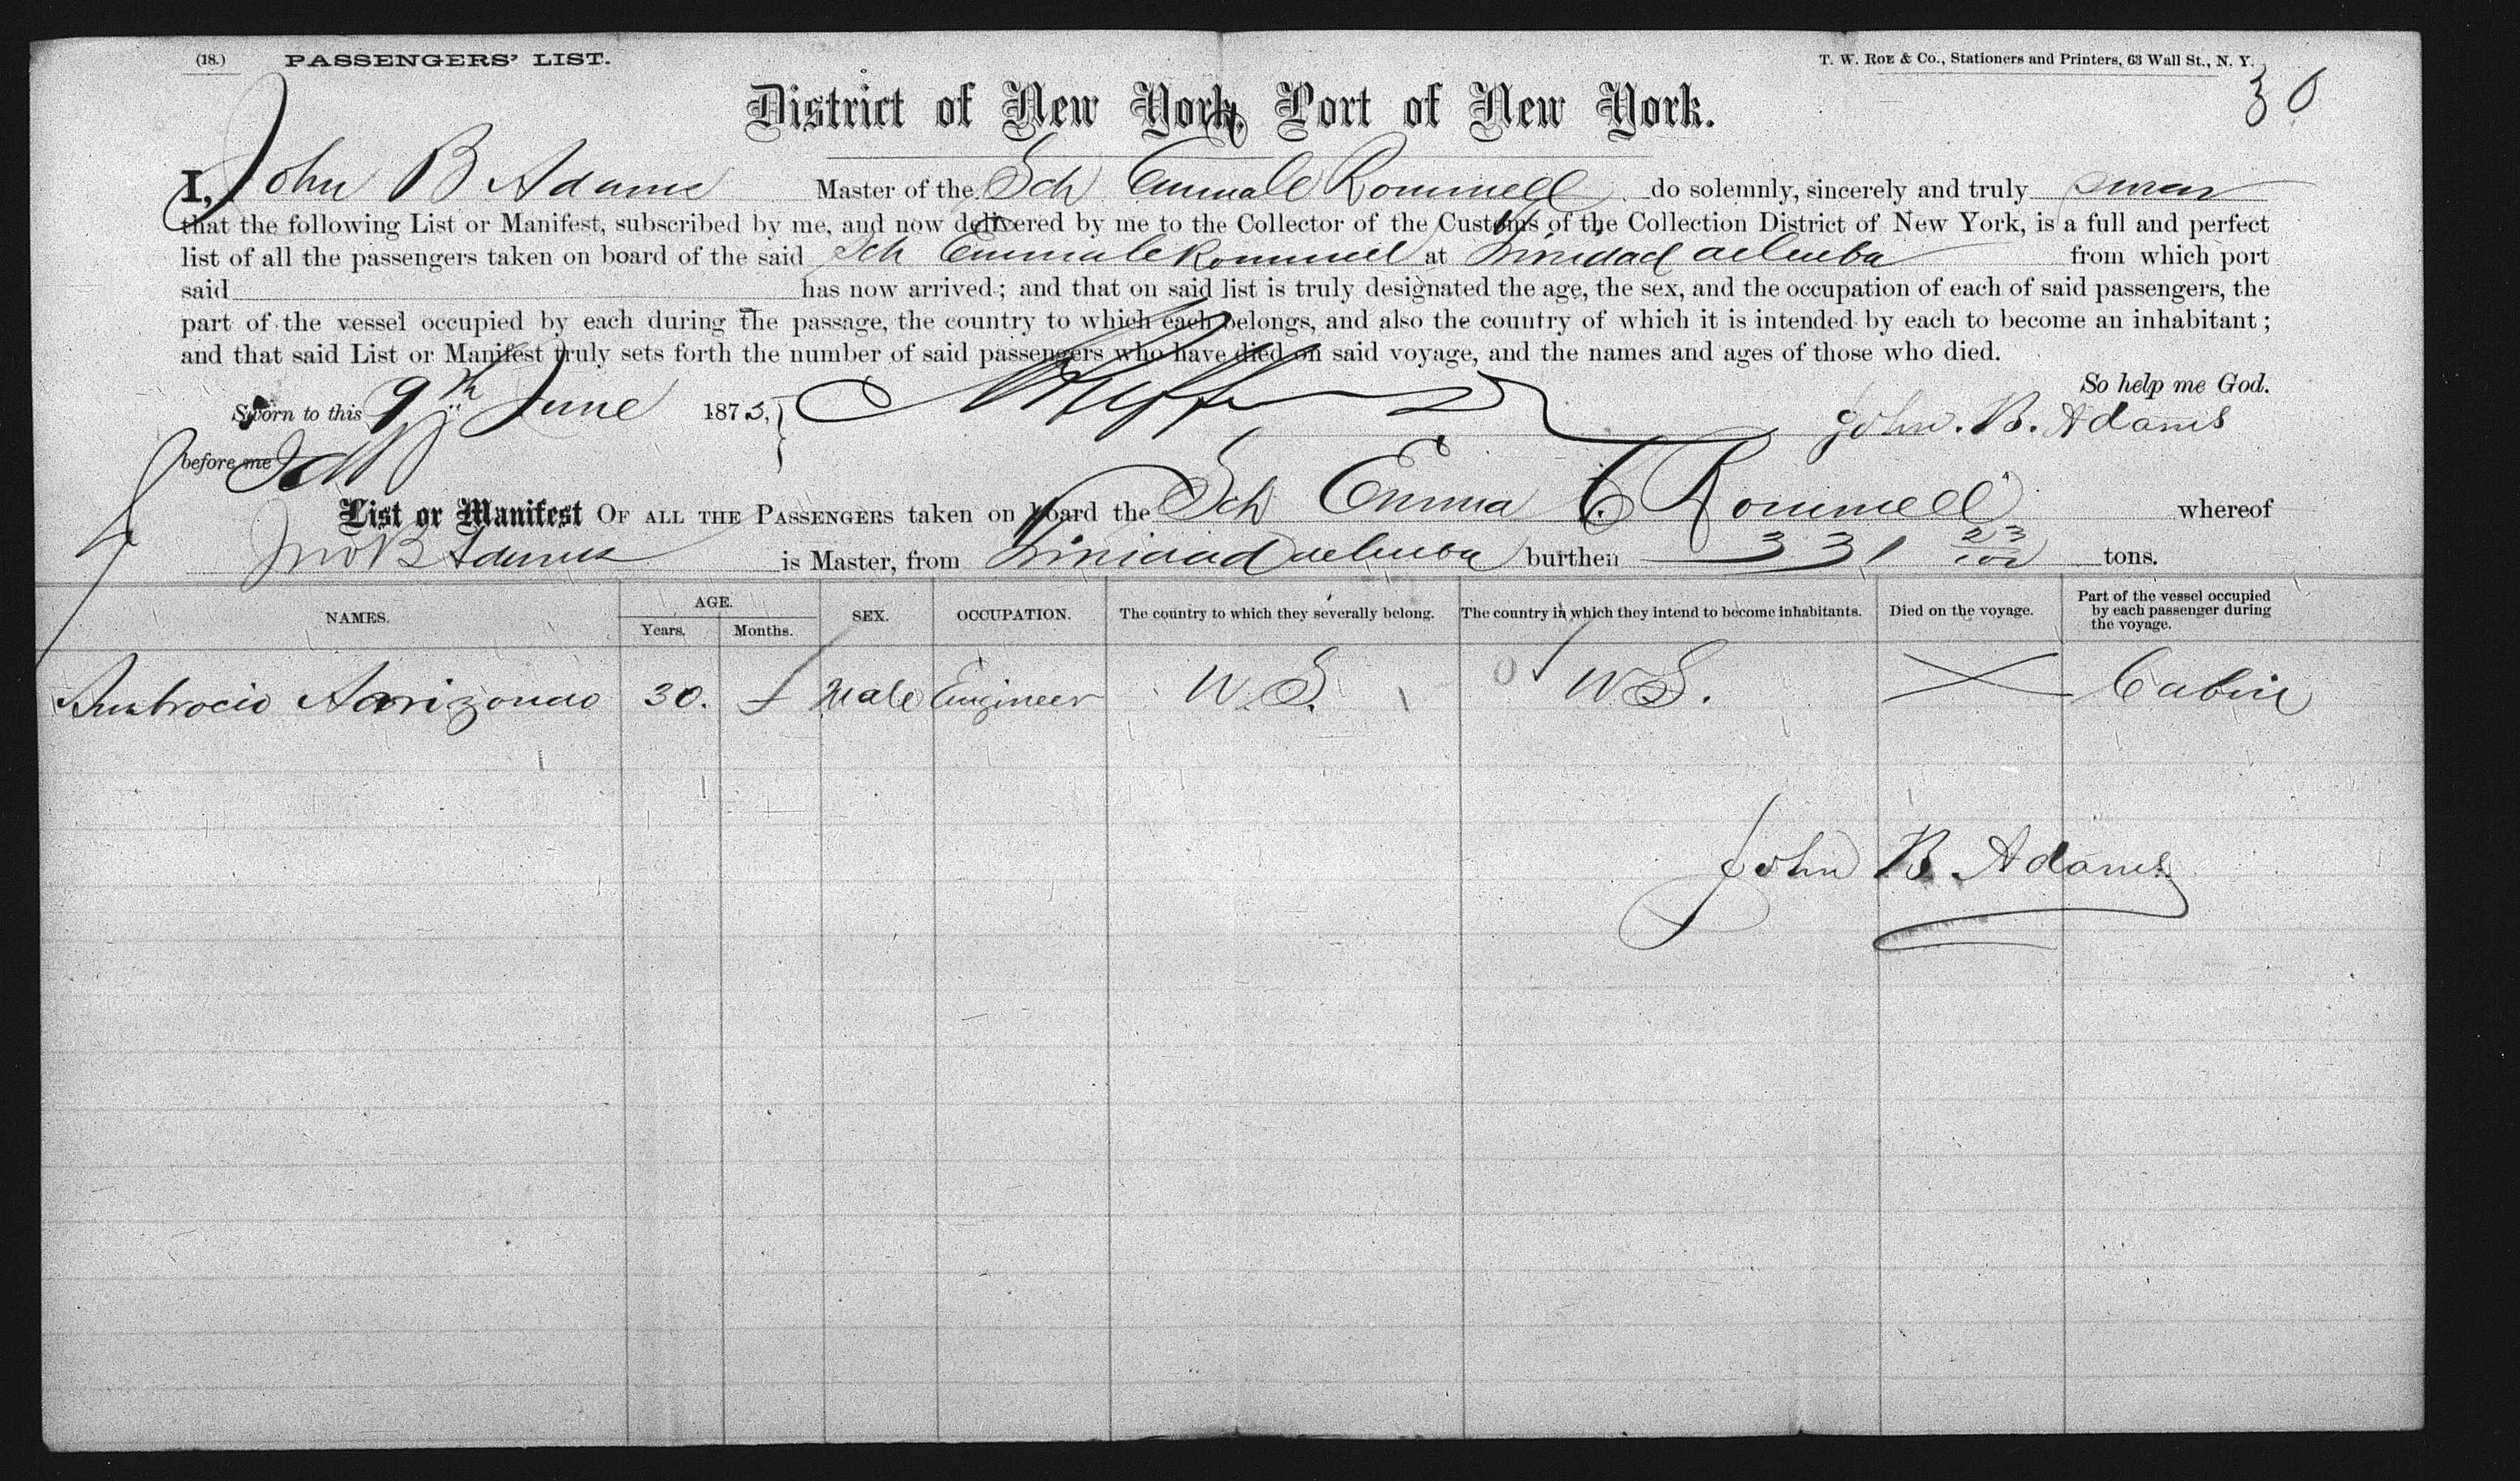 (18.) PASSENGERS' LIST. T. W. ROE & Co., Stationers and Printers, 63 Wall St., N. Y.
30
District of New York, Port of New York.
I, John B Adams Master of the Sch Emma C Rommell do solemnly, sincerely and truly swear
that the following List or Manifest, subscribed by me, and now delivered by me to the Collector of the Customs of the Collection District of New York, is a full and perfect
list of all the passengers taken on board of the said Sch Emma C Rommell at Trinidad de Cuba from which port
said has now arrived; and that on said list is truly designated the age, the sex, and the occupation of each of said passengers, the
part of the vessel occupied by each during the passage, the country to which each belongs, and also the country of which it is intended by each to become an inhabitant;
and that said List or Manifest truly sets forth the number of said passengers who have died on said voyage, and the names and ages of those who died.
So help me God.
Sworn to this 9th June 1873, John. B. Adams
before me
List or Manifest OF ALL THE PASSENGERS taken on board the Sch Emma C Rommell whereof
Jno B Adams is Master, from Trinidad de Cuba burthen 331 23/100 tons.
NAMES. AGE. Years. Months. SEX. OCCUPATION. The country to which they severally belong. The country in which they intend to become inhabitants. Died on the voyage. Part of the vessel occupied by each passenger during the voyage.
Ambrocio 30. Male Engineer U.S. U.S. Cabin
John B. Adams